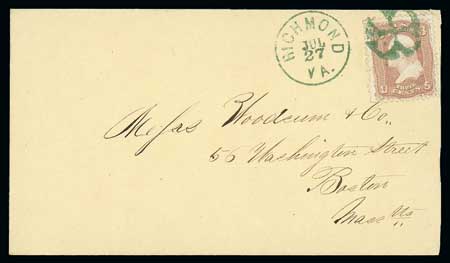 RICHMOND
JUL
27
VA.
Messrs Woodcum & Co.
56 Washington Street
Boston
Mass